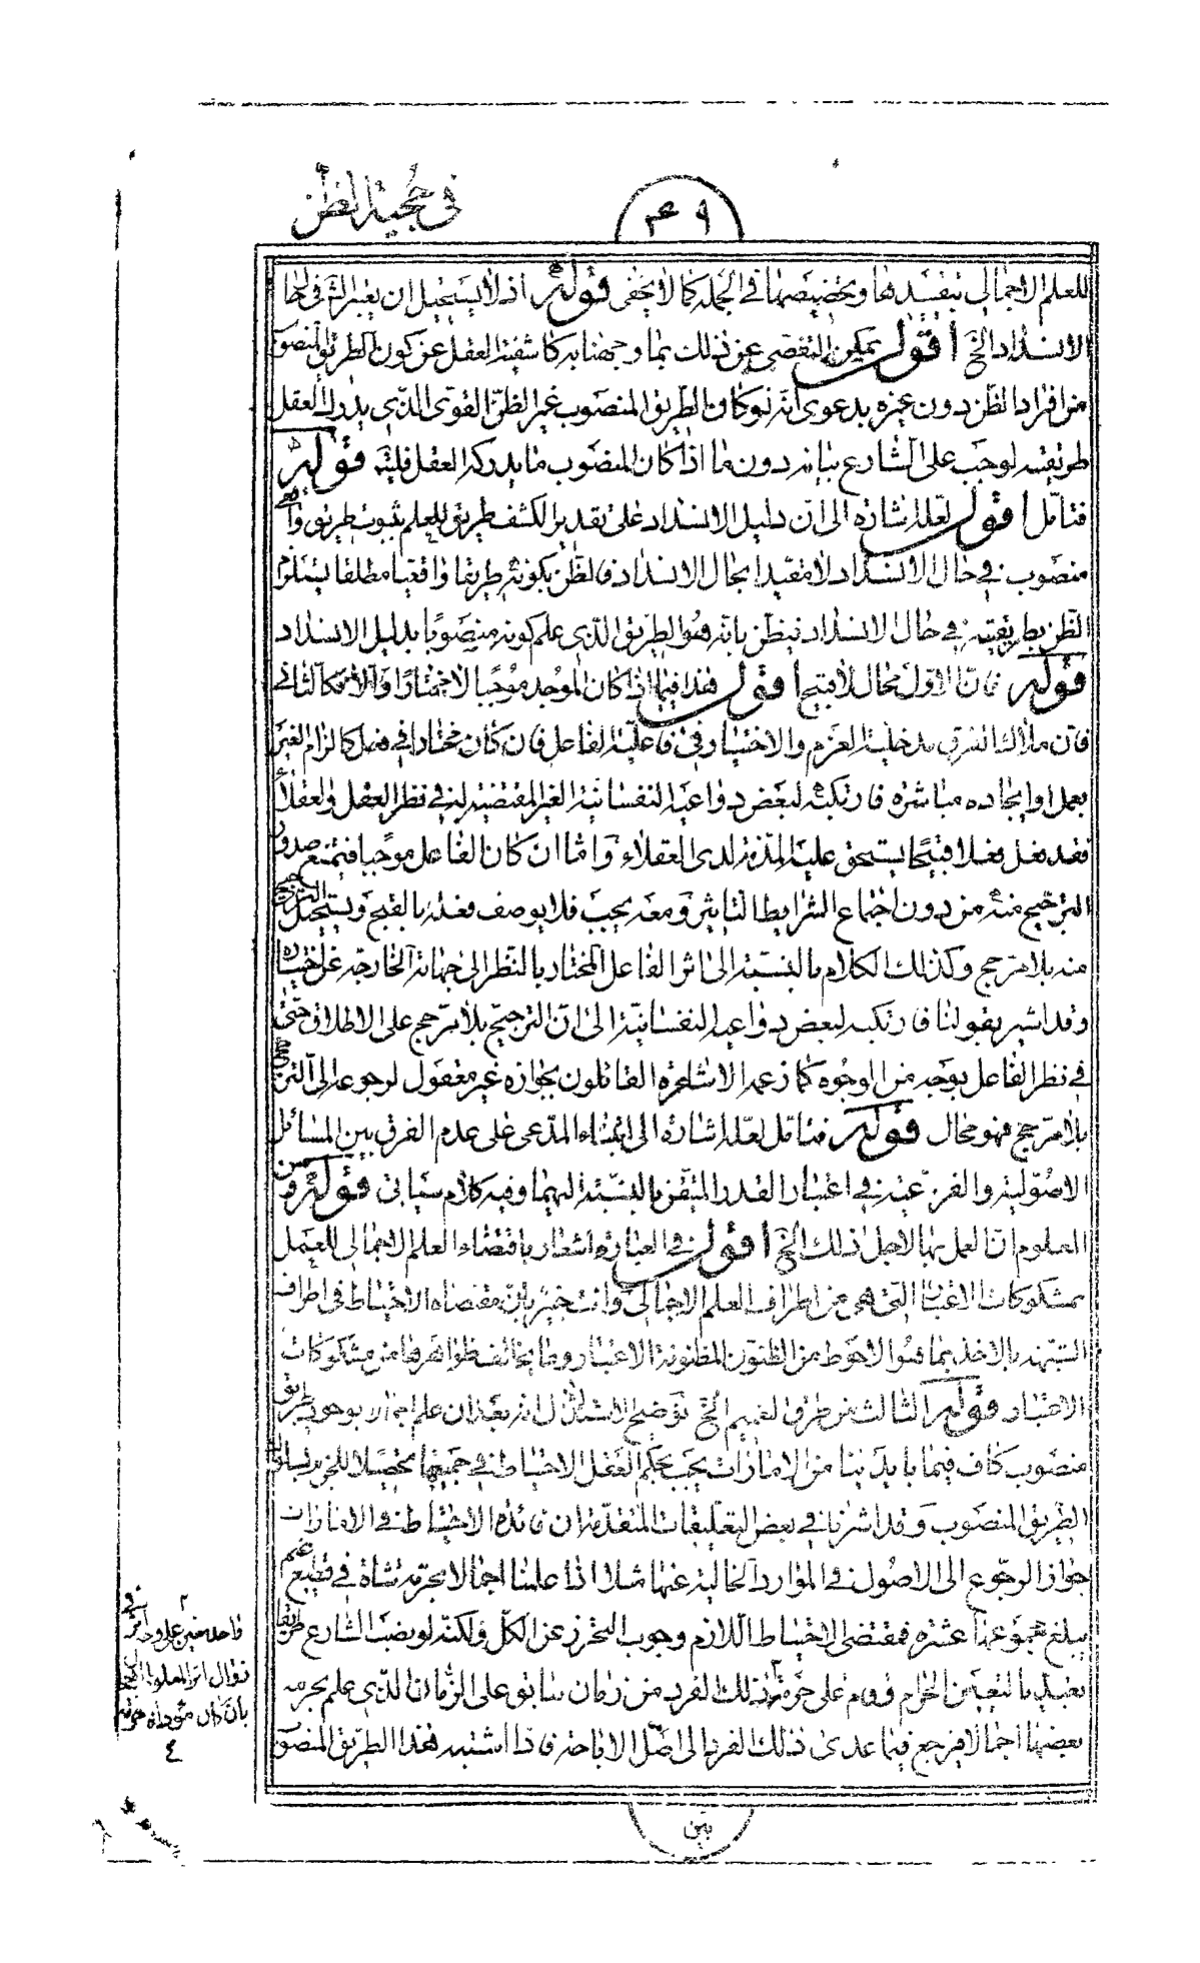 في حجية الظن
٤٩
للعلم الاجمالي بتقييدها وتخصيصها في الجملة كما لا يخفى قوله اذ لا يستحيل ان يعتبر الشّ في حال
الانسداد الخ اقول يمكن التفصى عن ذلك بما وجهنا به كاشفية العقل عن كون الطريق المنصوب
من افراد الظن دون غيره بدعوى انه لو كان الطريق المنصوب غير الظن القوى الذي يدرك العقل
طريقيته لوجب على الشارع بيانه دون ما اذا كان المنصوب ما يدركه العقل فليته قوله
فتامّل اقول لعله اشارة الى ان دليل الانسداد على تقدير الكشف طريق للعلم بثبوت طريق واقعي
منصوب في حال الانسداد لا مقيدا بحال الانسداد فالظن بكونه طريقا واقعيا مطلقا يستلزم
الظن بطريقيته في حال الانسداد فيظن بانه هو الطريق الذي علم كونه منصوبا بدليل الانسداد
قوله فان الاول محال لا قبيح اقول هذا فيما اذا كان الموجد موجبا لا مختارا والا فكالثاني
فان ملاك التأثير في مدخلية العزم والاختيار في فاعلية الفاعل فان كان مختارا في فعل كالزام الغير
بعمل او ايجاده مباشرة فارتكبه لبعض دواعيه النفسانية الغير المقتضية له في نظر العقل والعقلاء
فقد فعل فعلا قبيحا يستحق عليه المذمة لدى العقلاء واما ان كان الفاعل موجبا فيمتنع صدور
الترجيح منه من دون اجتماع الشرايط التاثير ومعه يجب فلا يوصف فعله بالقبح ويستحيل الترجيح
منه بلا مرجح وكذلك الكلام بالنسبة الى اثر الفاعل المختار بالنظر الى جهاته الخارجة عن اختياره
وقد اشير بقولنا فارتكبه لبعض دواعيه النفسانية الى ان الترجيح بلا مرجح على الاطلاق حتى
في نظر الفاعل بوجه من الوجوه كما زعمه الاشاعرة القائلون بجوازه غير معقول لرجوعه الى الترجح
بلا مرجح فهو محال قوله فتامّل لعله اشارة الى ابتناء المدعى على عدم الفرق بين المسائل
الاصولية والفرعية في اعتبار القدر المتيقن بالنسبة اليهما وفيه كلام سياتي قوله ومن
المعلوم ان العمل بها لاجل ذلك الخ اقول في العبارة اشعار باقتضاء العلم الاجمالي للعمل
بمشكوكات الاعتبار التي هي من اطراف العلم الاجمالي وانت خبير بان مقتضاه الاحتياط في اطراف
الشبهة بالاخذ بما هو الاحوط من الظنون المظنونة الاعتبار وما يخالف ظواهرها من مشكوكات
الاعتبار قوله الثالث من طرق التعميم الخ توضيح الاستدلال انه بعد ان علم اجمالا بوجود طريق
منصوب كاف فيما بايدينا من الامارات يجب بحكم العقل الاحتياط في جميعها تحصيلا للجزم بسلوك
الطريق المنصوب وقد اشرنا في بعض التعليقات المتقدمة ان فائدة الاحتياط في الامارات
جواز الرجوع الى الاصول في الموارد الخالية عنها مثلا اذا علمنا اجمالا بحرمة شاة في قطيع غنم
يبلغ مجموعها عشرة فمقتضى الاحتياط اللازم وجوب التحرز عن الكل ولكنه لو نصب الشارع طريقا
تعبديا لتعيين الحرام وقام على حرمة ذلك الفرد من زمان سابق على الزمان الذي علم بحرمة
بعضها اجمالا فيرجع فيما عدى ذلك الفرد الى اصل الاباحة فاذا اشتبه هذا الطريق المنصوب
بين